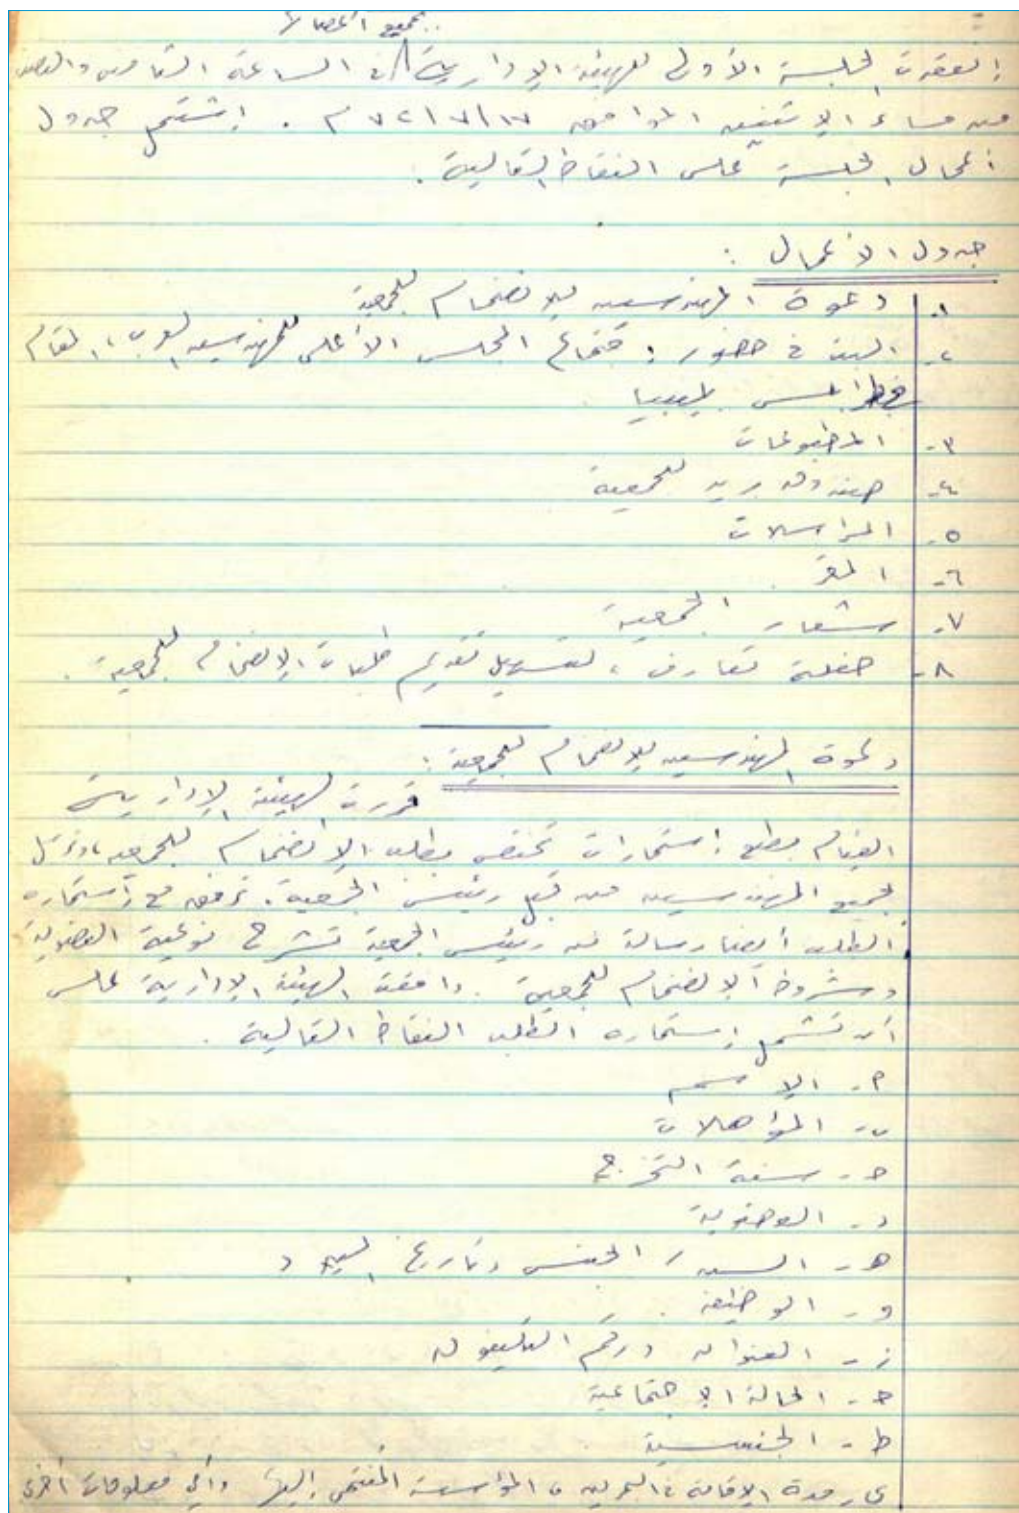 بجميع أعضائها
إنعقدت الجلسة الأولى للهيئة الإدارية في الساعة الثامنة والنصف
من مساء الإثنين الموافق ٧٢/٧/١٧ م . إشتمل جدول
أعمال الجلسة على النقاط التالية .
جدول الأعمال :
١- دعوة المهندسين للإنضمام للجمعية
٢- البت في حضور إجتماع المجلس الأعلى للمهندسين العرب ، المقام
بطرابلس بليبيا
٣- المطبوعات
٤- صندوق بريد للجمعية
٥- المراسلات
٦- المقر .
٧- شعار الجمعية
٨- حفلة تعارف ، لتسهيل تقديم طلبات الإنضمام للجمعية .
دعوة المهندسين للإنضمام للجمعية :
قررت الهيئة الإدارية
القيام بطبع إستمارات تختص بطلب الإنضمام للجمعية ، وترسل
لجميع المهندسين من قبل رئيس الجمعية . ترفق مع إستمارة
الطلب أيضا رسالة من رئيس الجمعية تشرح نوعية العضوية
وشروط الإنضمام للجمعية . وافقت الهيئة الإدارية على
أن تشمل إستمارة الطلب النقاط التالية .
أ- الإسم
ب- المؤهلات
ج- سنة التخرج
د- العضوية
هـ- السن / الجنس وتاريخ الميلاد
و- الوظيفة .
ز- العنوان ورقم التليفون
ح- الحالة الإجتماعية
ط- الجنسية
ي- مدة الإقامة في البحرين ، المؤسسة المنتمى إليها وأي معلومات أخرى